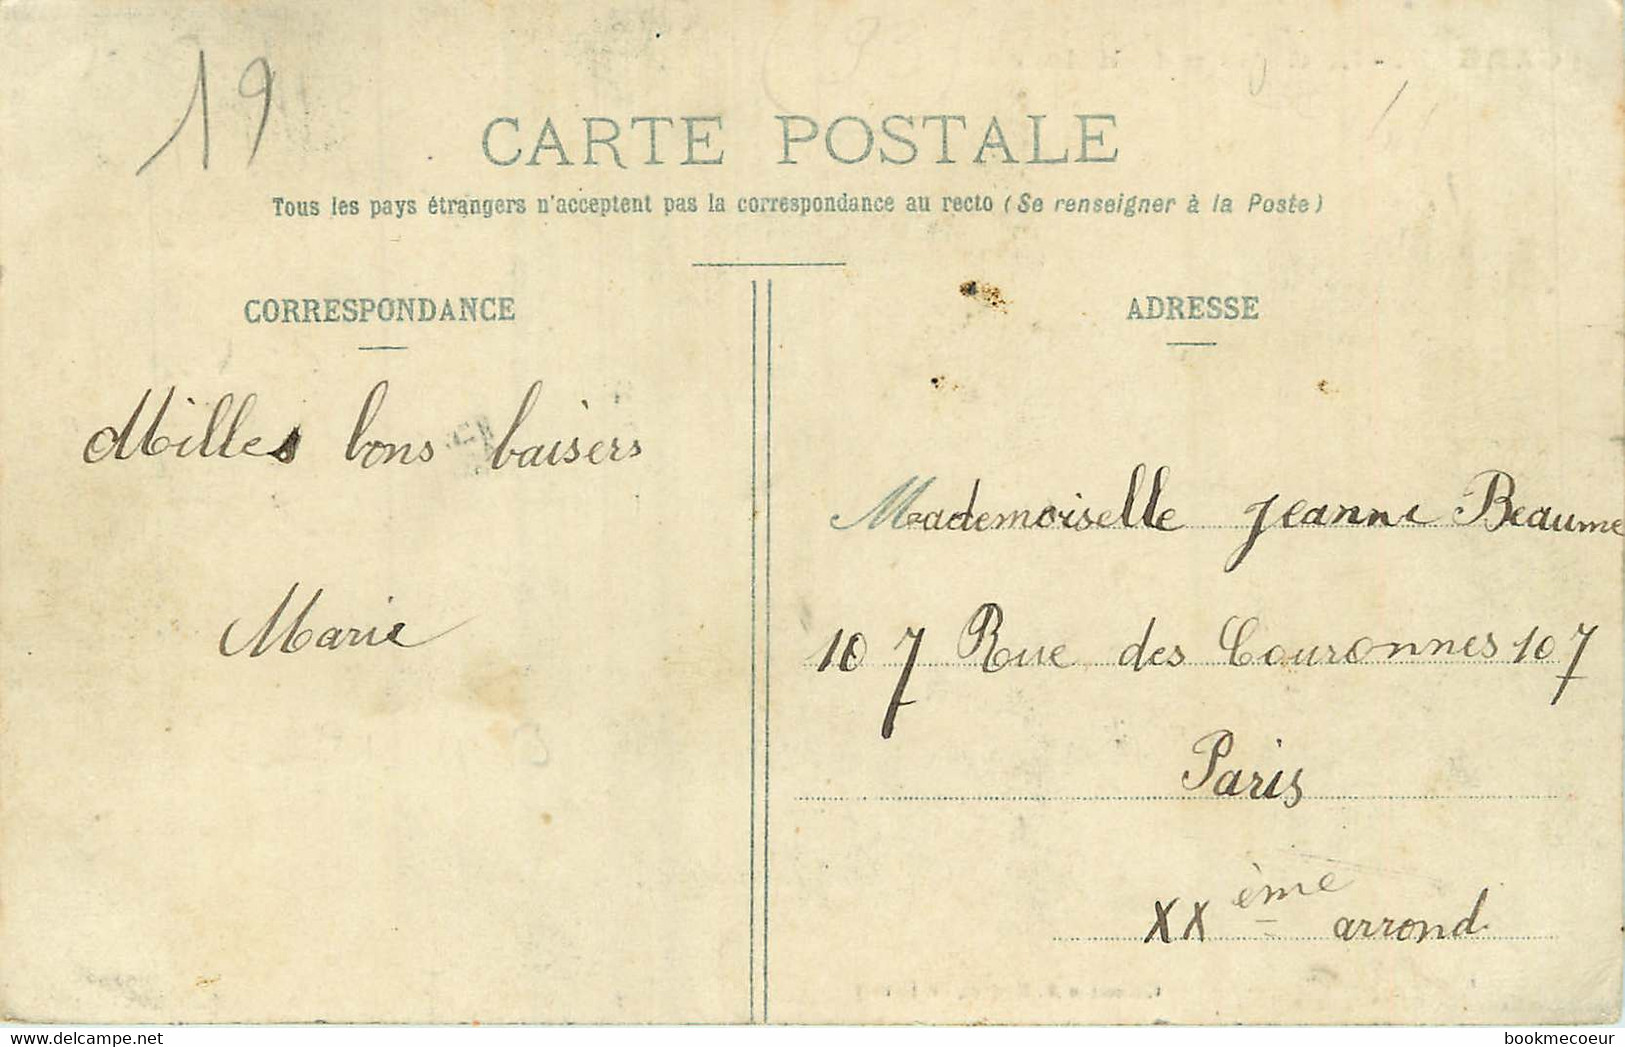 19
CARTE POSTALE
Tous les pays étrangers n'acceptent pas la correspondance au recto (Se renseigner à la Poste)
CORRESPONDANCE
Milles bons baisers
Marie
ADRESSE
Mademoiselle Jeanne Beaume
107 Rue des Couronnes 107
Paris
XXème arrond.
www.delcampe.net
bookmecoeur